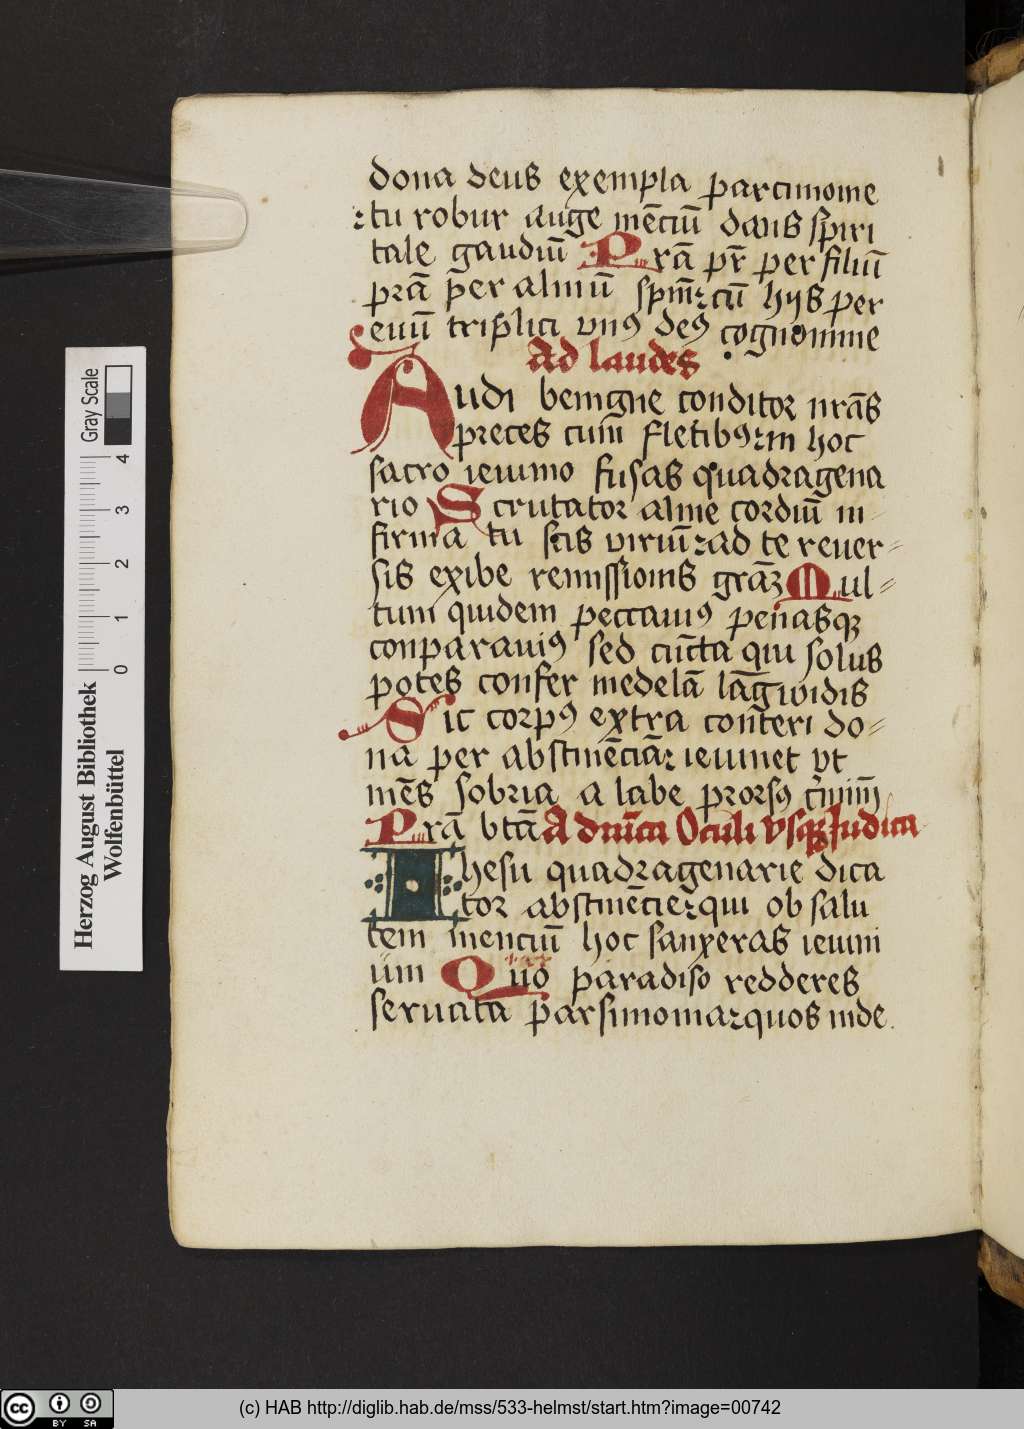 dona deus exempla parcimonie
⁊tu robur auge mēciū dans sp̄iri
tale gaudiū Prā pr̄ per filiū
prā per almū spm̄⁊cū hijs per
euū triplici vnꝯ deꝯ cognomine
Ad laudes
Audi benigne conditor nrās
preces cum fletibꝯ⁊in hoc
sacro ieiunio fusas quadragena
rio Scrutator alme cordiū in
firma tu scis viriū⁊ad te reuer=
sis exibe remissionis grāʒ Mul=
tum quidem peccauiꝯ penasqʒ
conparauiꝯ sed cūcta qui solus
potes confer medelā lāgwidis
Sic corpꝯ extra conteri do=
na per abstinēciā⁊ ieiunet vt
mēs sobria a labe prorsꝯ cͥminū
Prā btā Ad nūcā Oculi vsqʒ Judica
Ihesu quadragenarie dica
tor abstinēcie⁊qui ob salu
tem menciū hoc sanxeras ieiuni
um Quo paradiso redderes
seruata parsimonia⁊quos inde.
Gray Scale
0 1 2 3 4
Herzog August Bibliothek
Wolfenbüttel
cc BY SA
(c) HAB http://diglib.hab.de/mss/533-helmst/start.htm?image=00742